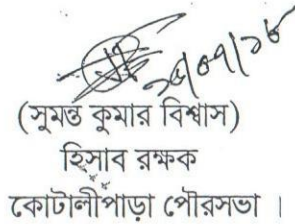 ২৫/০৭/১৮
(সুমন্ত কুমার বিশ্বাস)
হিসাব রক্ষক
কোটালীপাড়া পৌরসভা ।